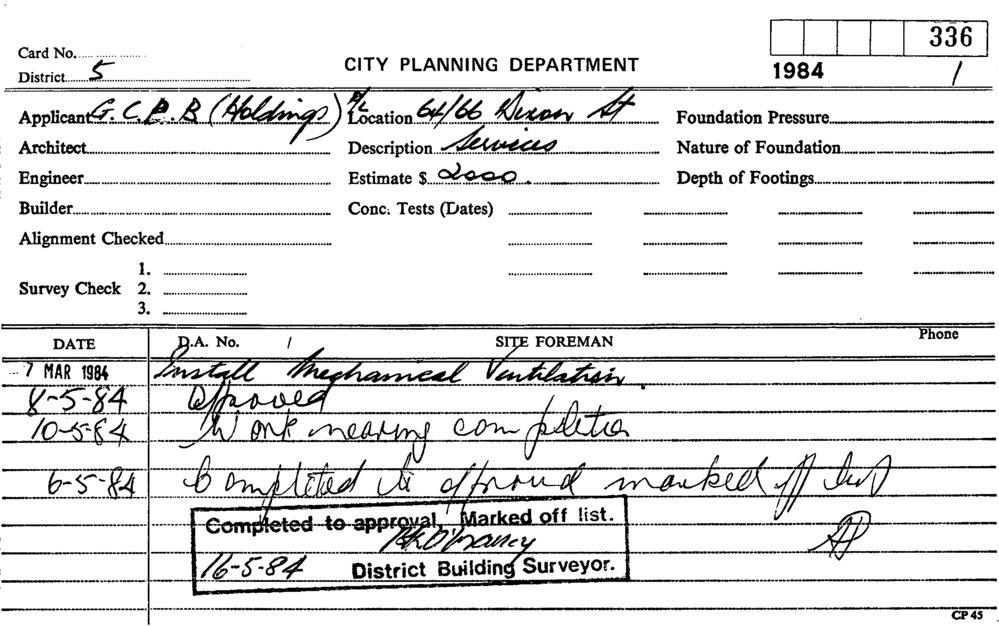 336
Card No.
CITY PLANNING DEPARTMENT
District 5
1984 1
Applicant G.C.P.B (Holdings) P/L Location 64/66 Dixon St Foundation Pressure
Architect Description Services Nature of Foundation
Engineer Estimate $ 2000. Depth of Footings
Builder Conc. Tests (Dates)
Alignment Checked
1.
Survey Check 2.
3.
DATE D.A. No. / SITE FOREMAN Phone
7 MAR 1984 Install Mechanical Ventilation.
8-5-84 approved
10-5-84 Work nearing completion
6-5-84 Completed to approval marked off list
Completed to approval, Marked off list.
16-5-84 District Building Surveyor.
CP 45